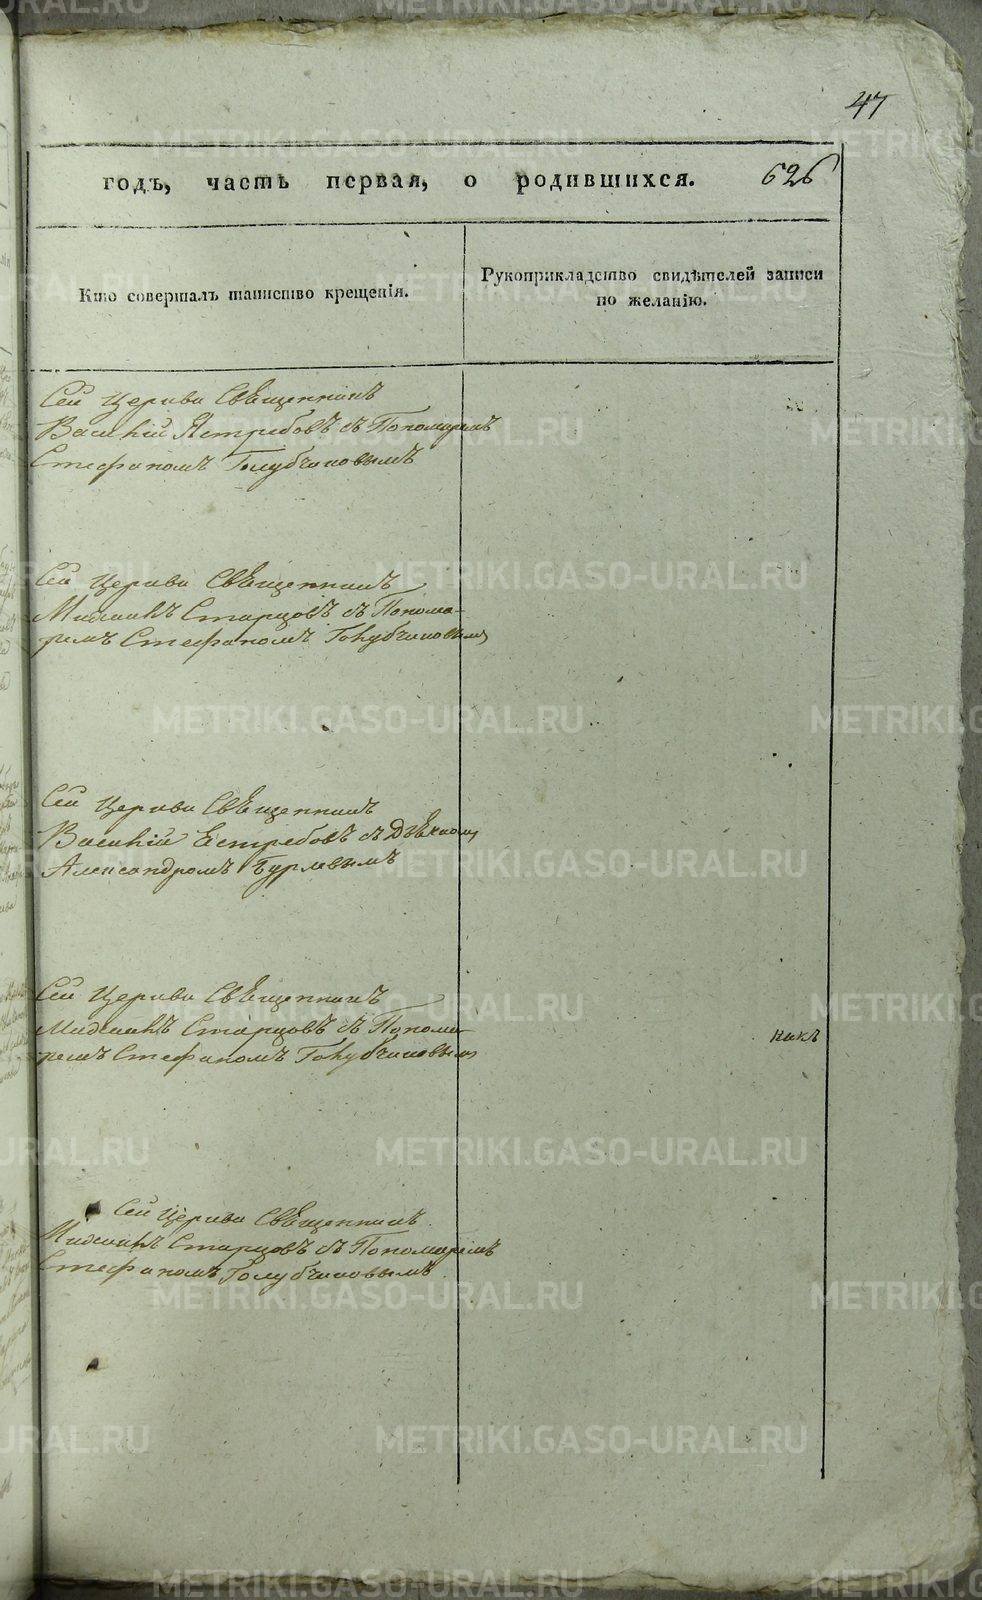 47
годъ, часть первая, о родившихся. 626
Кто совершалъ таинство крещенія.
Рукоприкладство свидѣтелей записи
по желанію.
Сей Церкви Священникъ
Василій Ястребовъ съ Пономаремъ
Стефаномъ Голубчиковымъ
Сей Церкви Священникъ
Михаилъ Старцовъ съ Понома-
ремъ Стефаномъ Голубчиковымъ
Сей Церкви Священникъ
Василій Естребовъ съ Дьѣкномъ
Александромъ
Сей Церкви Священникъ
Михаилъ Старцовъ съ Понома-
ремъ Стефаномъ Голубчиковымъ
Сей Церкви Священникъ
Михаилъ Старцовъ съ Пономаремъ
Стефаномъ Голубчиковымъ
METRIKI.GASO-URAL.RU